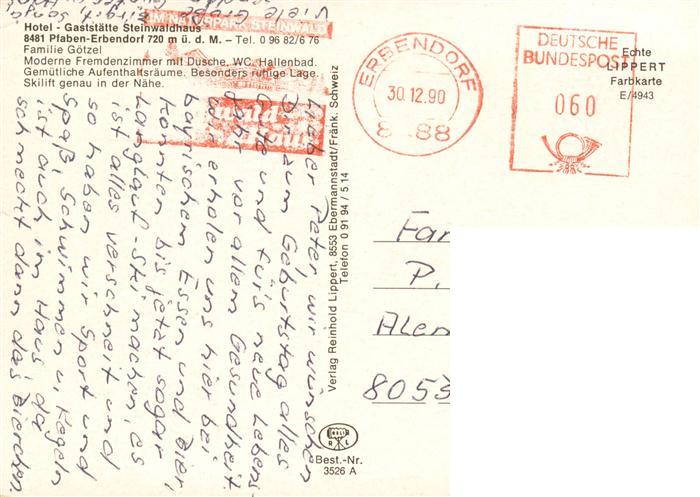 Hotel - Gaststätte Steinwaldhaus
8481 Pfaben-Erbendorf 720 m ü. d. M. – Tel. 0 96 82/6 76
Familie Götzel
Moderne Fremdenzimmer mit Dusche, WC, Hallenbad.
Gemütliche Aufenthaltsräume. Besonders ruhige Lage.
Skilift genau in der Nähe.
IM NATURPARK STEINWALD
ERBENDORF
30.12.90
8488
DEUTSCHE
BUNDESPOST
060
Echte
LIPPERT
Farbkarte
E/4943
Lieber Peter, wir wünschen
Dir zum Geburtstag alles
Gute und für's neue Lebens-
jahr vor allem Gesundheit
Wir erholen uns hier bei
bayrischem Essen und Bier,
konnten bis jetzt sogar
Langlauf-Ski machen, es
ist alles verschneit und
so haben wir Sport und
Spaß, Schwimmen u. Kegeln
ist auch im Haus, da
schmeckt dann das Bierchen
Viele
Verlag Reinhold Lippert, 8553 Ebermannstadt/Fränk. Schweiz
Telefon 0 91 94 / 5 14
Fam
P.
Alen
8053
R L
Best.-Nr.
3526 A